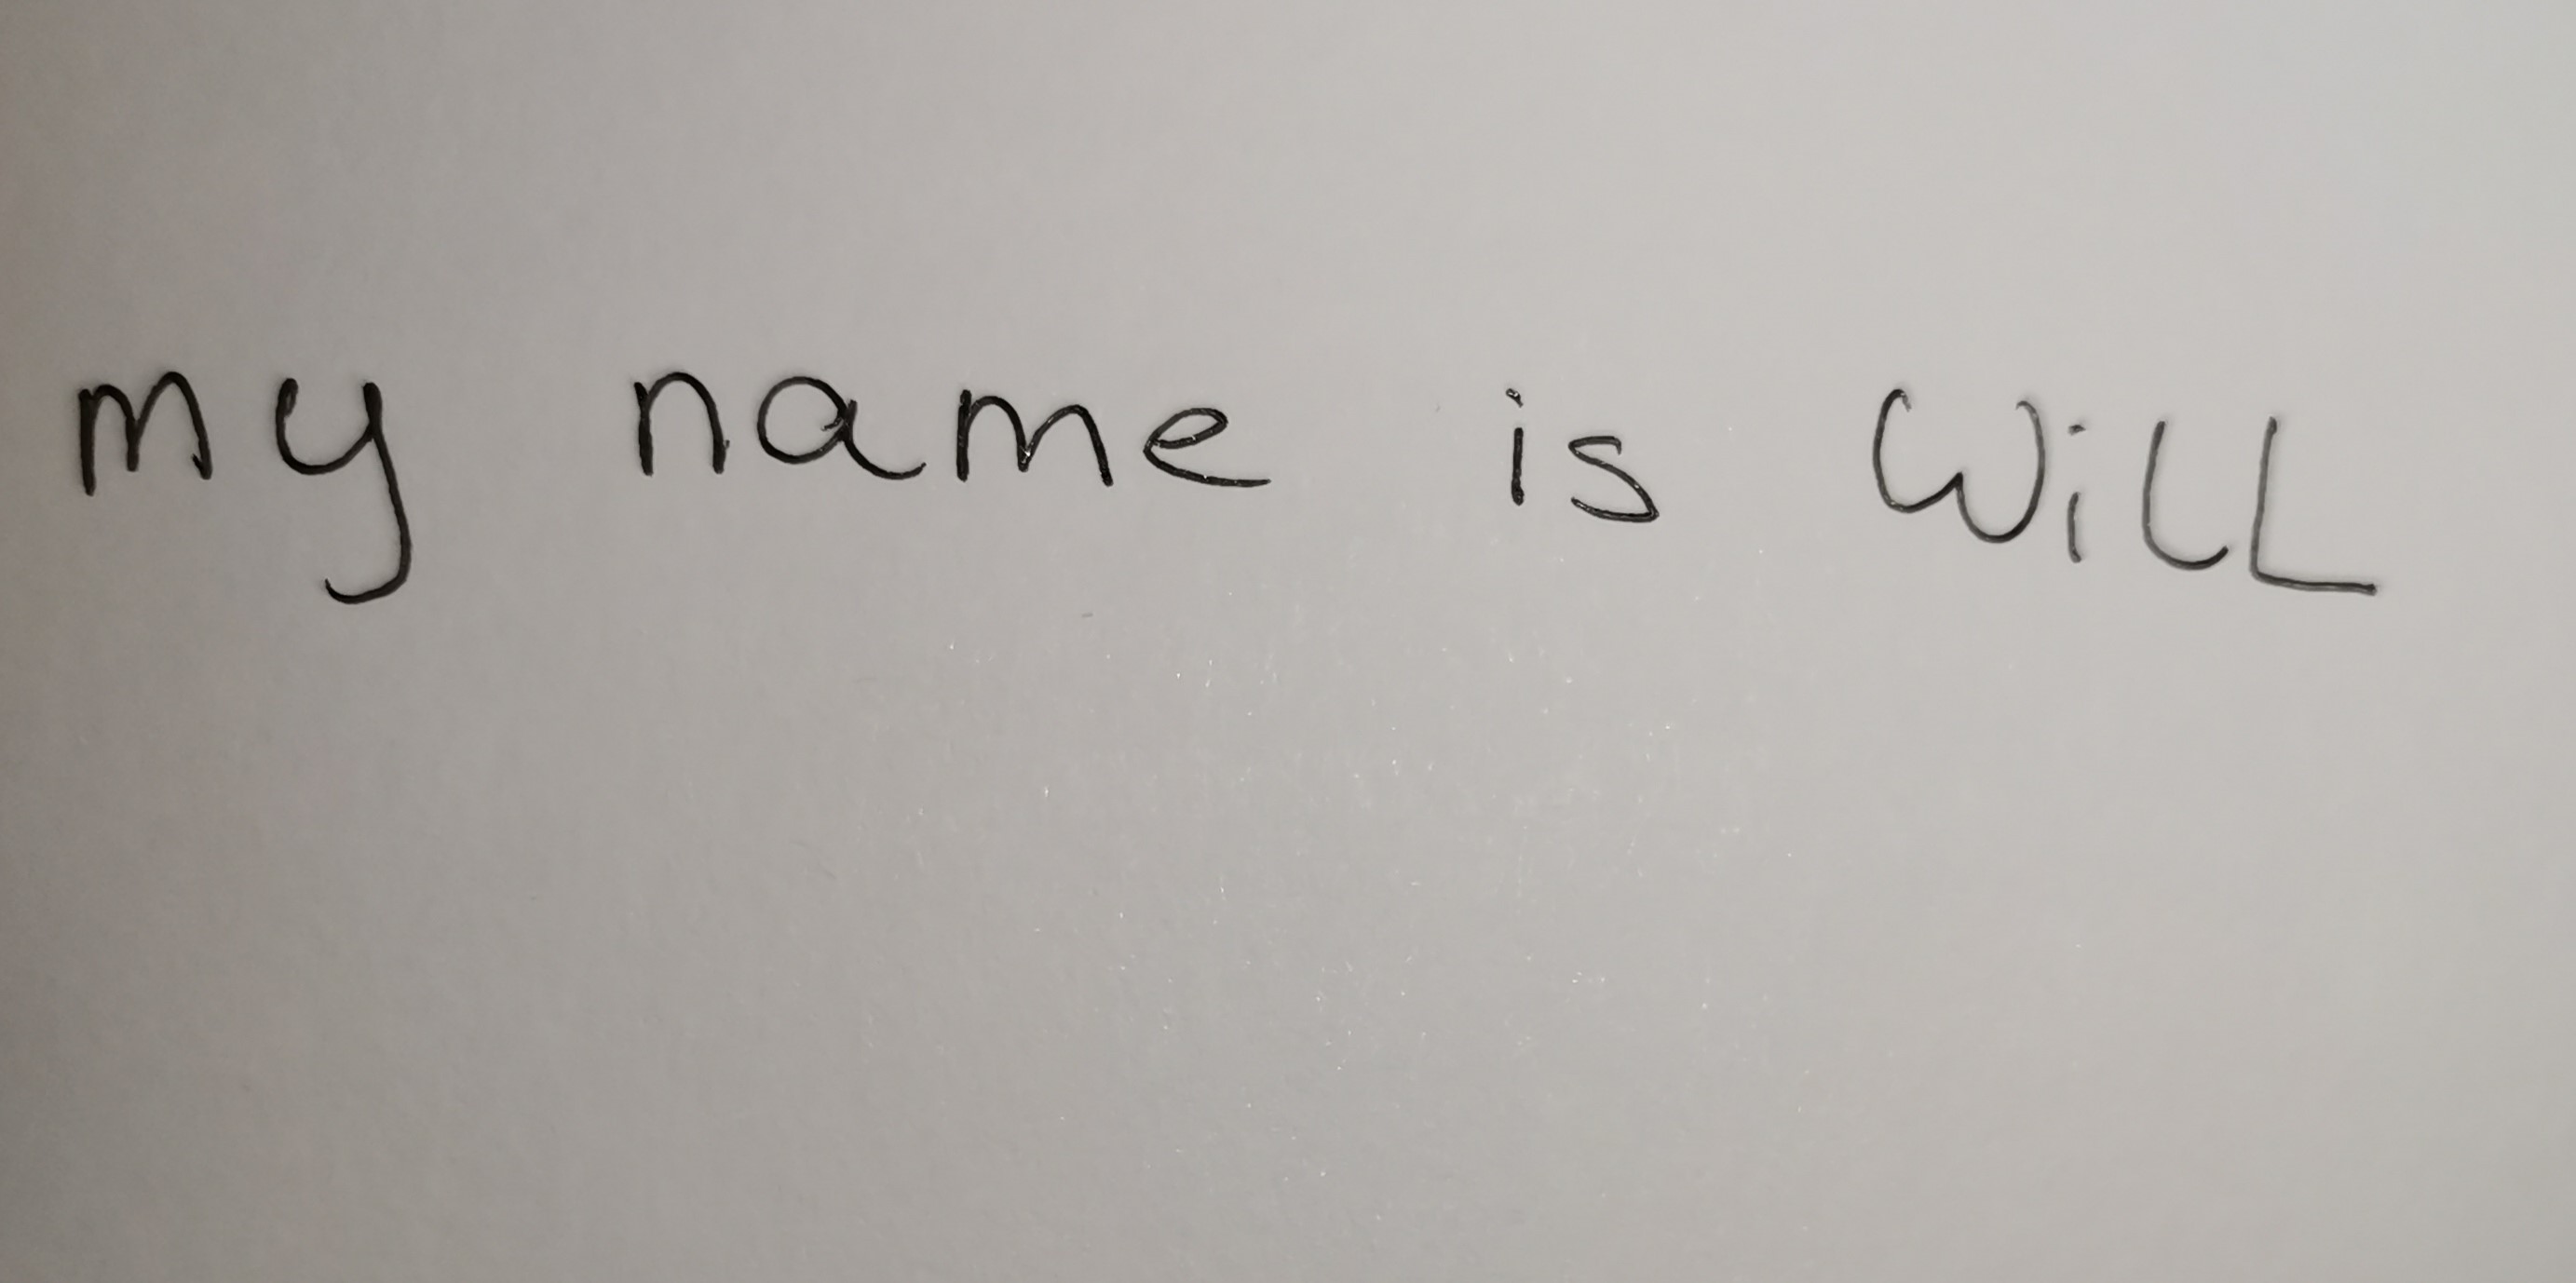 my name is WiLL